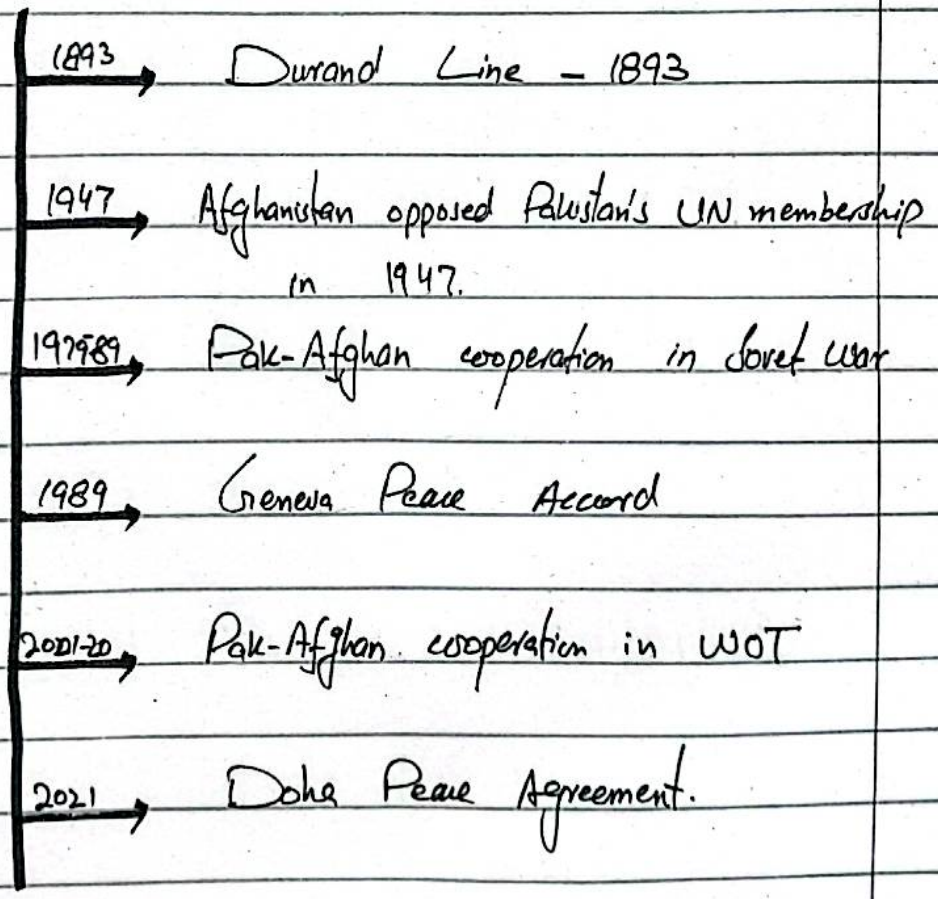 1893 Durand Line - 1893
1947 Afghanistan opposed Pakistan's UN membership
in 1947.
1979-89 Pak-Afghan cooperation in Soviet war
1989 Geneva Peace Accord
2001-20 Pak-Afghan cooperation in WOT
2021 Doha Peace Agreement.